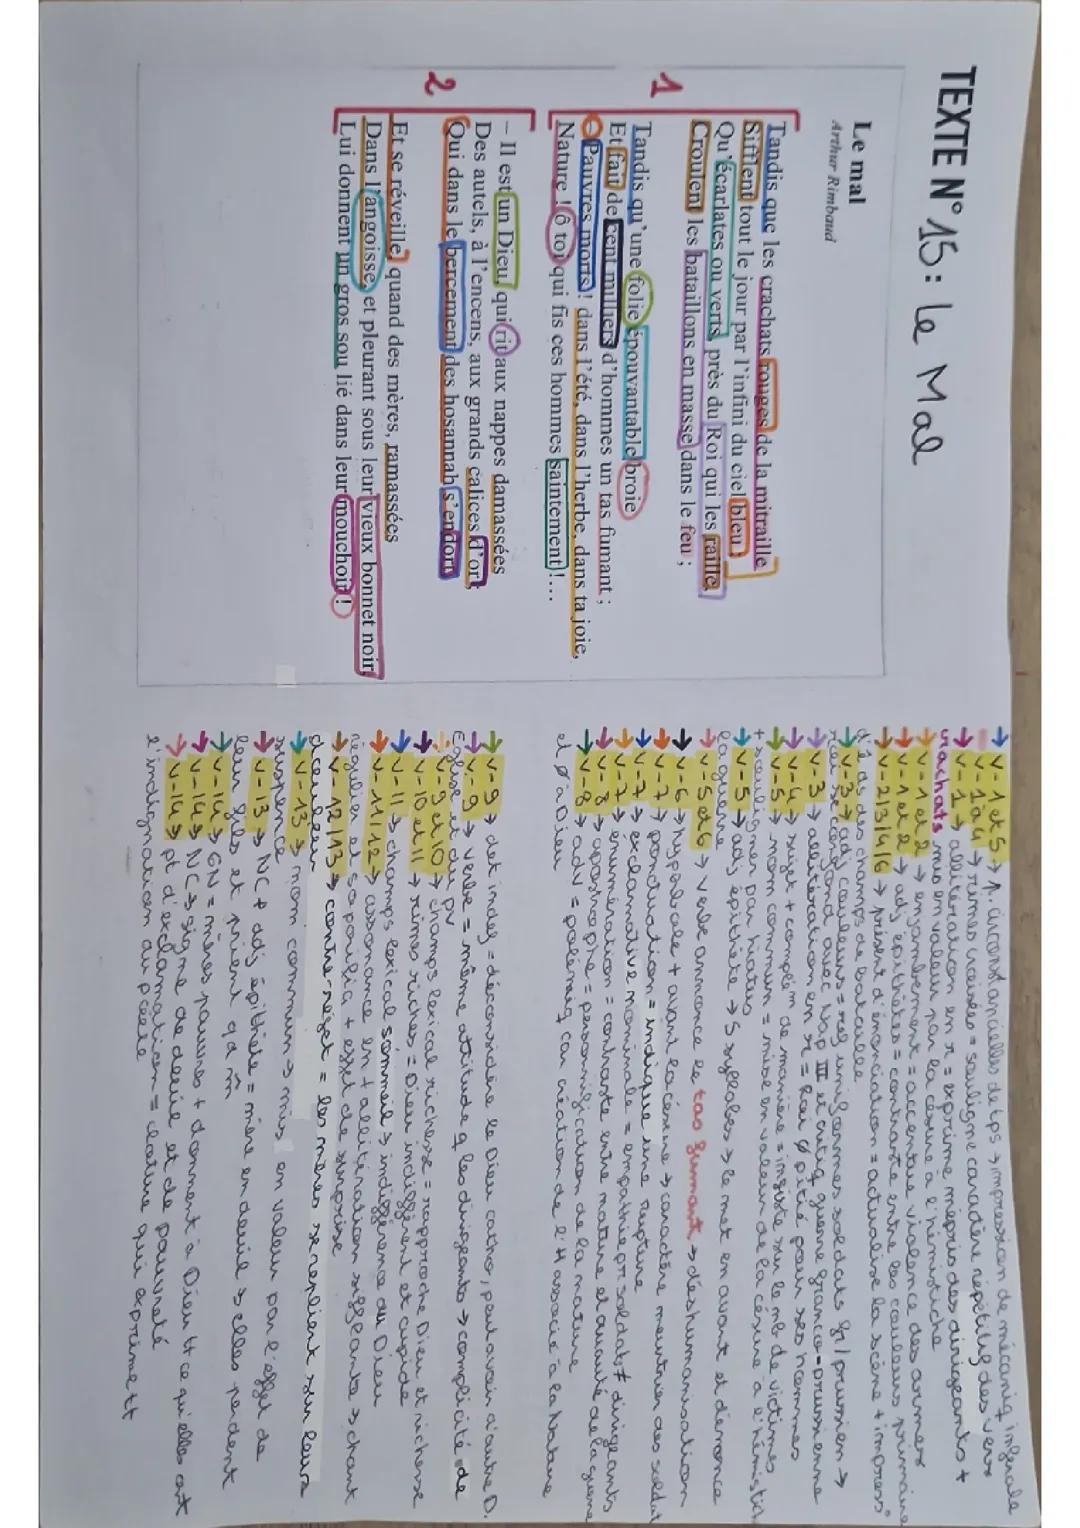 TEXTE N°15 : Le Mal
Le mal
Arthur Rimbaud
1
Tandis que les crachats rouges de la mitraille
Sifflent tout le jour par l'infini du ciel bleu ;
Qu'écarlates ou verts, près du Roi qui les raille,
Croulent les bataillons en masse dans le feu ;
Tandis qu'une folie épouvantable broie
Et fait de cent milliers d'hommes un tas fumant ;
– Pauvres morts ! dans l'été, dans l'herbe, dans ta joie,
Nature ! ô toi qui fis ces hommes saintement !…
2
– Il est un Dieu, qui rit aux nappes damassées
Des autels, à l'encens, aux grands calices d'or ;
Qui dans le bercement des hosannah s'endort,
Et se réveille, quand des mères, ramassées
Dans l'angoisse, et pleurant sous leur vieux bonnet noir,
Lui donnent un gros sou lié dans leur mouchoir !
→ v-1 et 5 → p. circonstancielles de tps → impression de mécaniq infernale
→ v-1 à 4 → rimes croisées = souligne caractère répétitif des vers
→ v-1 → allitération en r = exprime mépris des dirigeants +
crachats mis en valeur par la césure à l'hémistiche
→ v-1 et 2 → enjambement = accentue violence des armes
→ v-1 et 2 → adj épithètes = contraste entre les couleurs primaires
→ v-2/3/4/6 → présent d'énonciation = actualise la scène + impress°
d'ê ds des champs de bataille
→ v-3 → adj couleurs = réf uniformes soldats fr / prussien →
Roi se confond avec Nap III et critiq guerre franco-prussienne
→ v-3 → allitération en r = Roi ø pitié pour ses hommes
→ v-4 → sujet + complém de manière = insiste sur le nb de victimes
→ v-5 → nom commun = mise en valeur de la césure à l'hémistich
+ souligner par hiatus
→ v-5 → adj épithète → 5 syllabes → le met en avant et dénonce
la guerre
→ v-5 et 6 → verbe annonce le tas fumant → déshumanisation
→ v-6 → hyperbole + avant la césure → caractère meurtrier des soldat
→ v-7 → ponctuation = indique une rupture
→ v-7 → exclamative nominale = empathie pr soldats ≠ dirigeants
→ v-7 → énumération = contraste entre nature et cruauté de la guerre
→ v-8 → apostrophe = personnification de la nature
→ v-8 → adv = polémiq car création de l'H associé à la Nature
et ø à Dieu
→ v-9 → det indéf = déconsidère le Dieu catho, peut avoir d'autre D.
→ v-9 → verbe = même attitude q les dirigeants → complicité de
Eglise et du pv
→ v-9 et 10 → champs lexical richesse = rapproche Dieu et richesse
→ v-10 et 11 → rimes riches = Dieu indifférent et cupide
→ v-11 → champs lexical sommeil → indifférence du Dieu
→ v-11/12 → assonance en + allitération sifflante → chant
régulier et soporifiq + effet de surprise
→ v-12/13 → contre-rejet = les mères se replient sur leurs
douleur
→ v-13 → nom commun → mis en valeur par l'effet de
suspence
→ v-13 → NC + adj épithète = mère en deuil → elles perdent
leur fils et prient qd m̂
→ v-14 → GN = mères pauvres + donnent à Dieu tt ce qu'elles ont
→ v-14 → NC → signe de deuil et de pauvreté
→ v-14 → pt d'exclamation = cloture qui exprime tt
l'indignation du poète